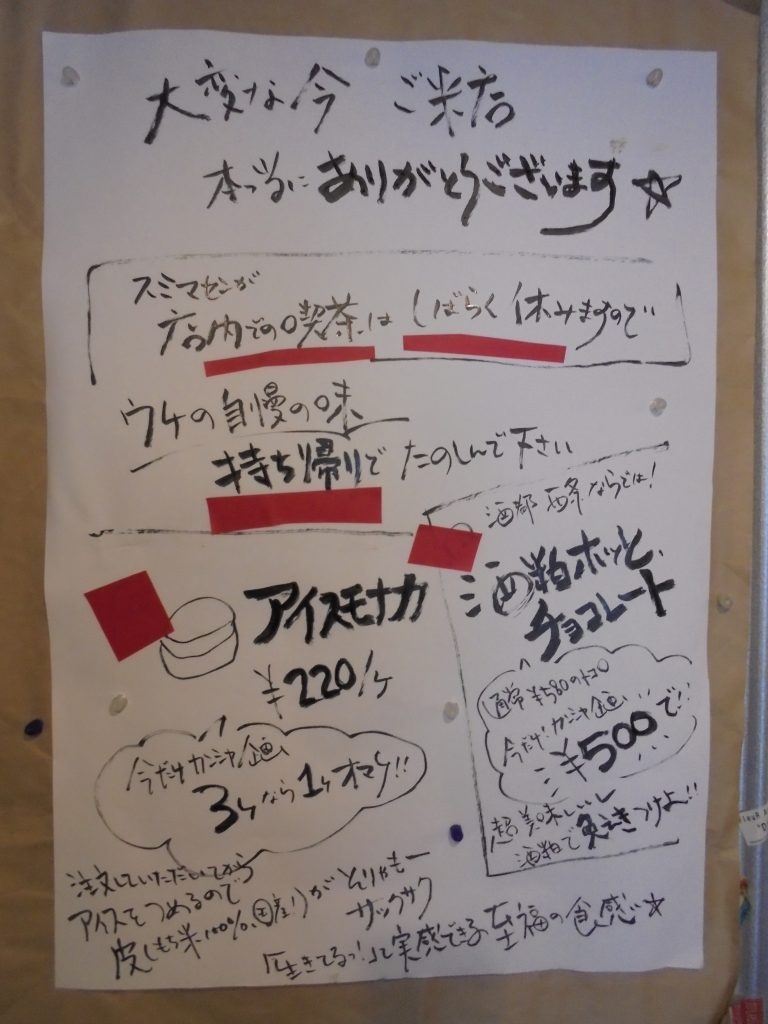 大変な今 ご来店
本当に ありがとうございます☆
スミマセンが
店内での喫茶は しばらく 休みますので
ウケの自慢の味
持ち帰りで たのしんで下さい
アイスモナカ
¥220/ケ
今だけカンシャ企画
3ケなら1ケオマケ!!
酒都 西条ならでは!
酒粕ホット
チョコレート
通常¥580のトコロ
今だけ!カンシャ企画
¥500で!!
超美味しいし
酒粕で つけよ!!
注文していただいてから
アイスをつめるので
皮(もち米100%、国産)が とんりゃもー
サックサク
「生きてるっ!」って実感できる 至福の食感☆